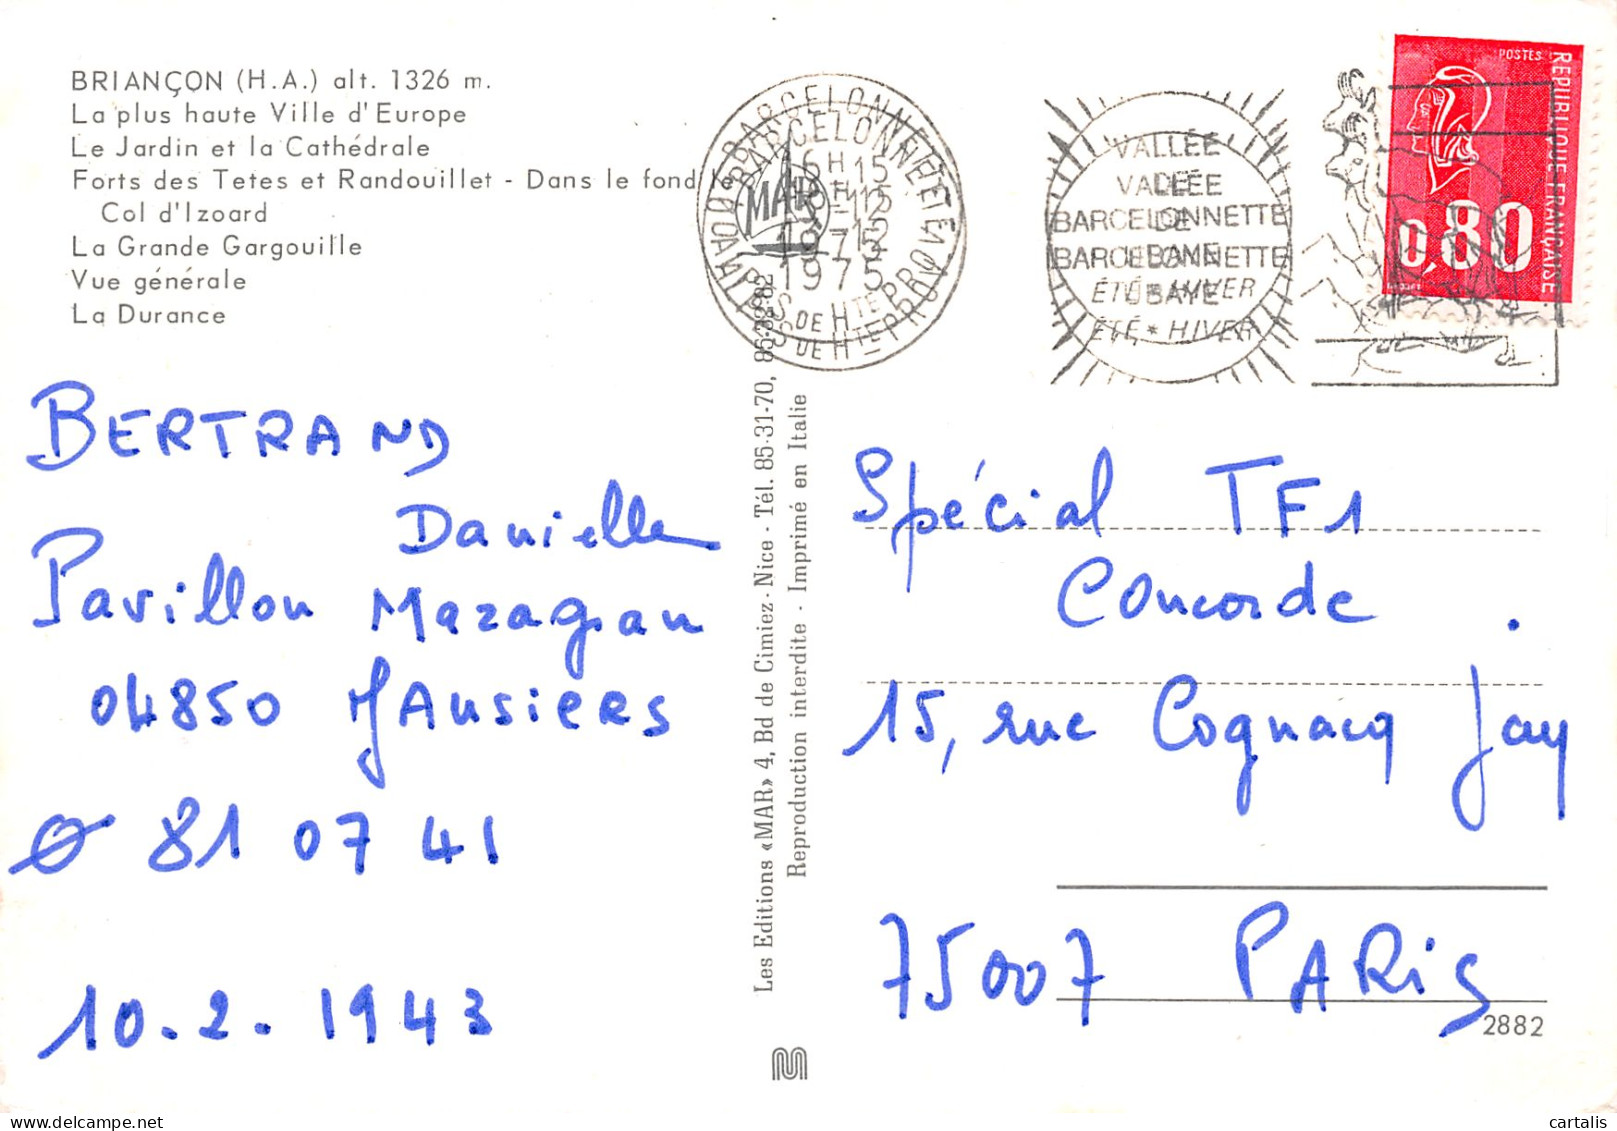 BRIANÇON (H.A.) alt. 1326 m.
La plus haute Ville d'Europe
Le Jardin et la Cathédrale
Forts des Tetes et Randouillet - Dans le fond
Col d'Izoard
La Grande Gargouille
Vue générale
La Durance
BARCELONNETTE
BARCELONNETTE
MAR
16H15
12
1975
1975
DE HTE PROV.
DE HTE PROV.
VALLÉE
VALLÉE
DE
BARCELONNETTE
DE
BARCELONNETTE
UBAYE
ÉTÉ * HIVER
UBAYE
ÉTÉ * HIVER
POSTES
REPUBLIQUE FRANÇAISE
0,80
BERTRAND
Danielle
Pavillon Mazagran
04850 JAusiers
81 07 41
10.2.1943
Les Editions «MAR» 4, Bd de Cimiez - Nice - Tél. 85-31-70, 85-38-82
Reproduction interdite - Imprimé en Italie
Spécial TF1
Concorde.
15, rue Cognacq Jay
75007 PARis
2882
M
cartalis